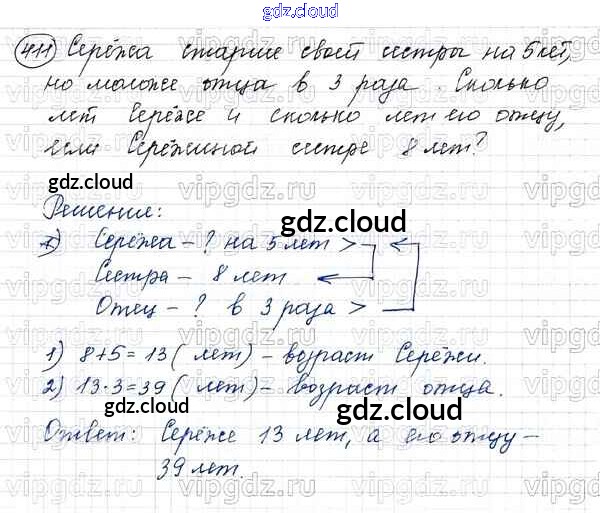 gdz.cloud
411 Серёжа старше своей сестры на 5 лет,
но моложе отца в 3 раза. Сколько
лет Серёже и сколько лет его отцу,
если Серёжиной сестре 8 лет?
gdz.cloud
Решение:
gdz.cloud
Серёжа - ? на 5 лет >
Сестра - 8 лет
Отец - ? в 3 раза >
1) 8+5=13 (лет) - возраст Серёжи.
2) 13·3=39 (лет) - возраст отца.
gdz.cloud
gdz.cloud
Ответ: Серёже 13 лет, а его отцу -
39 лет.
gdz.cloud
vipgdz.vipgdz.vipgdz.vipgdz